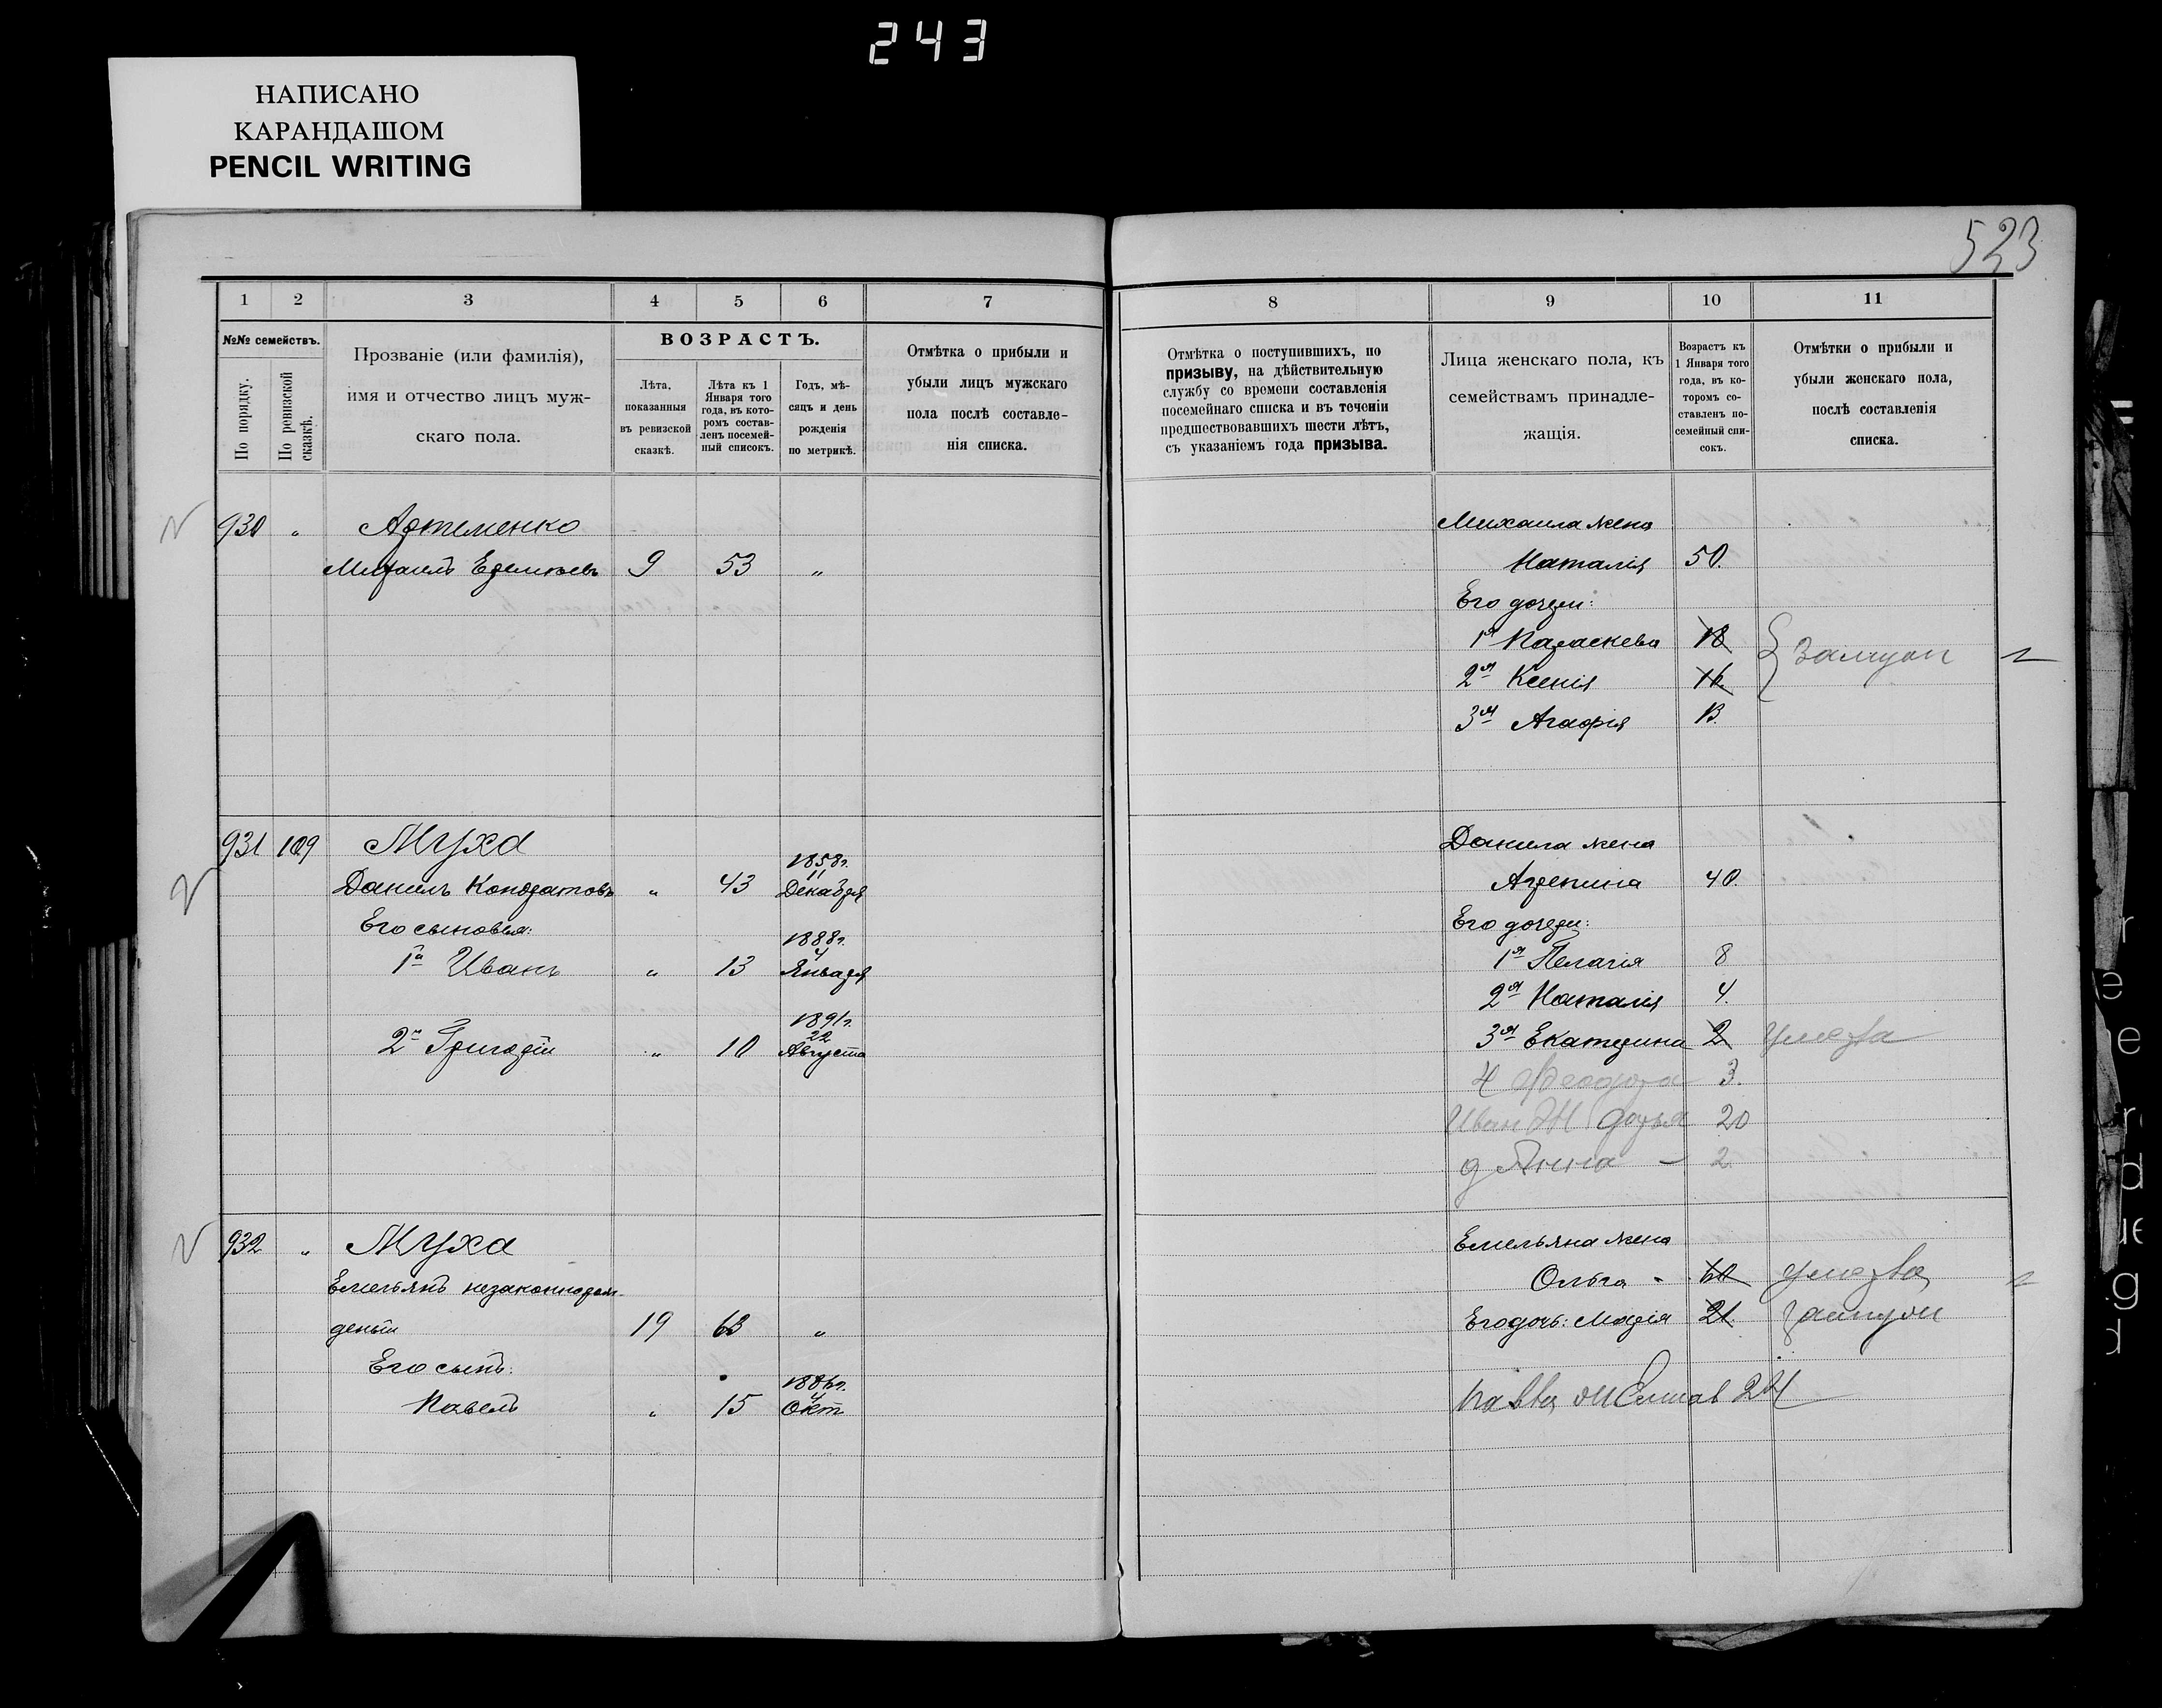 243
НАПИСАНО
КАРАНДАШОМ
PENCIL WRITING
523
1 2 3 4 5 6 7
№№ семействъ.
По порядку.
По ревизской сказкѣ.
Прозваніе (или фамилія),
имя и отчество лицъ муж-
скаго пола.
ВОЗРАСТЪ.
Лѣта,
показанныя
въ ревизской
сказкѣ.
Лѣта къ 1
Января того
года, въ кото-
ромъ состав-
ленъ посемей-
ный списокъ.
Годъ, мѣ-
сяцъ и день
рожденія
по метрикѣ.
Отмѣтка о прибыли и
убыли лицъ мужскаго
пола послѣ составле-
нія списка.
930 „ Артеменко
Михаилъ Ефимовъ 9 53 „
931 109 Муха
1858г.
11
Данилъ Кондратовъ „ 43 Декабря
Его сыновья:
1888г.
4
1й Иванъ „ 13 Января
1891г.
22
2й Григорій „ 10 Августа
932 „ Муха
Емельянъ незаконнорож-
деный 19 63 „
Его сынъ:
1886г.
4
Павелъ „ 15 Окт
8 9 10 11
Отмѣтка о поступившихъ, по
призыву, на дѣйствительную
службу со времени составленія
посемейнаго списка и въ теченіи
предшествовавшихъ шести лѣтъ,
съ указаніемъ года призыва.
Лица женскаго пола, къ
семействамъ принадле-
жащія.
Возрастъ къ
1 Января того
года, въ ко-
торомъ со-
ставленъ по-
семейный спи-
сокъ.
Отмѣтки о прибыли и
убыли женскаго пола,
послѣ составленія
списка.
Михаила жена
Наталія 50.
Его дочери:
1я Параскева 18
Замужи
2я Ксенія 16
3я Агафія 13.
Данила жена
Агрепина 40.
Его дочери:
1я Пелагія 8
2я Наталія 4.
3я Екатерина 2 Умерла
4 Феодора 3.
Иван Ж Дарья 20
д Анна – 2
Емельяна жена
Ольга - 60 умерла
Его дочь: Марія 21. замужи
Павла ж Елисав 24